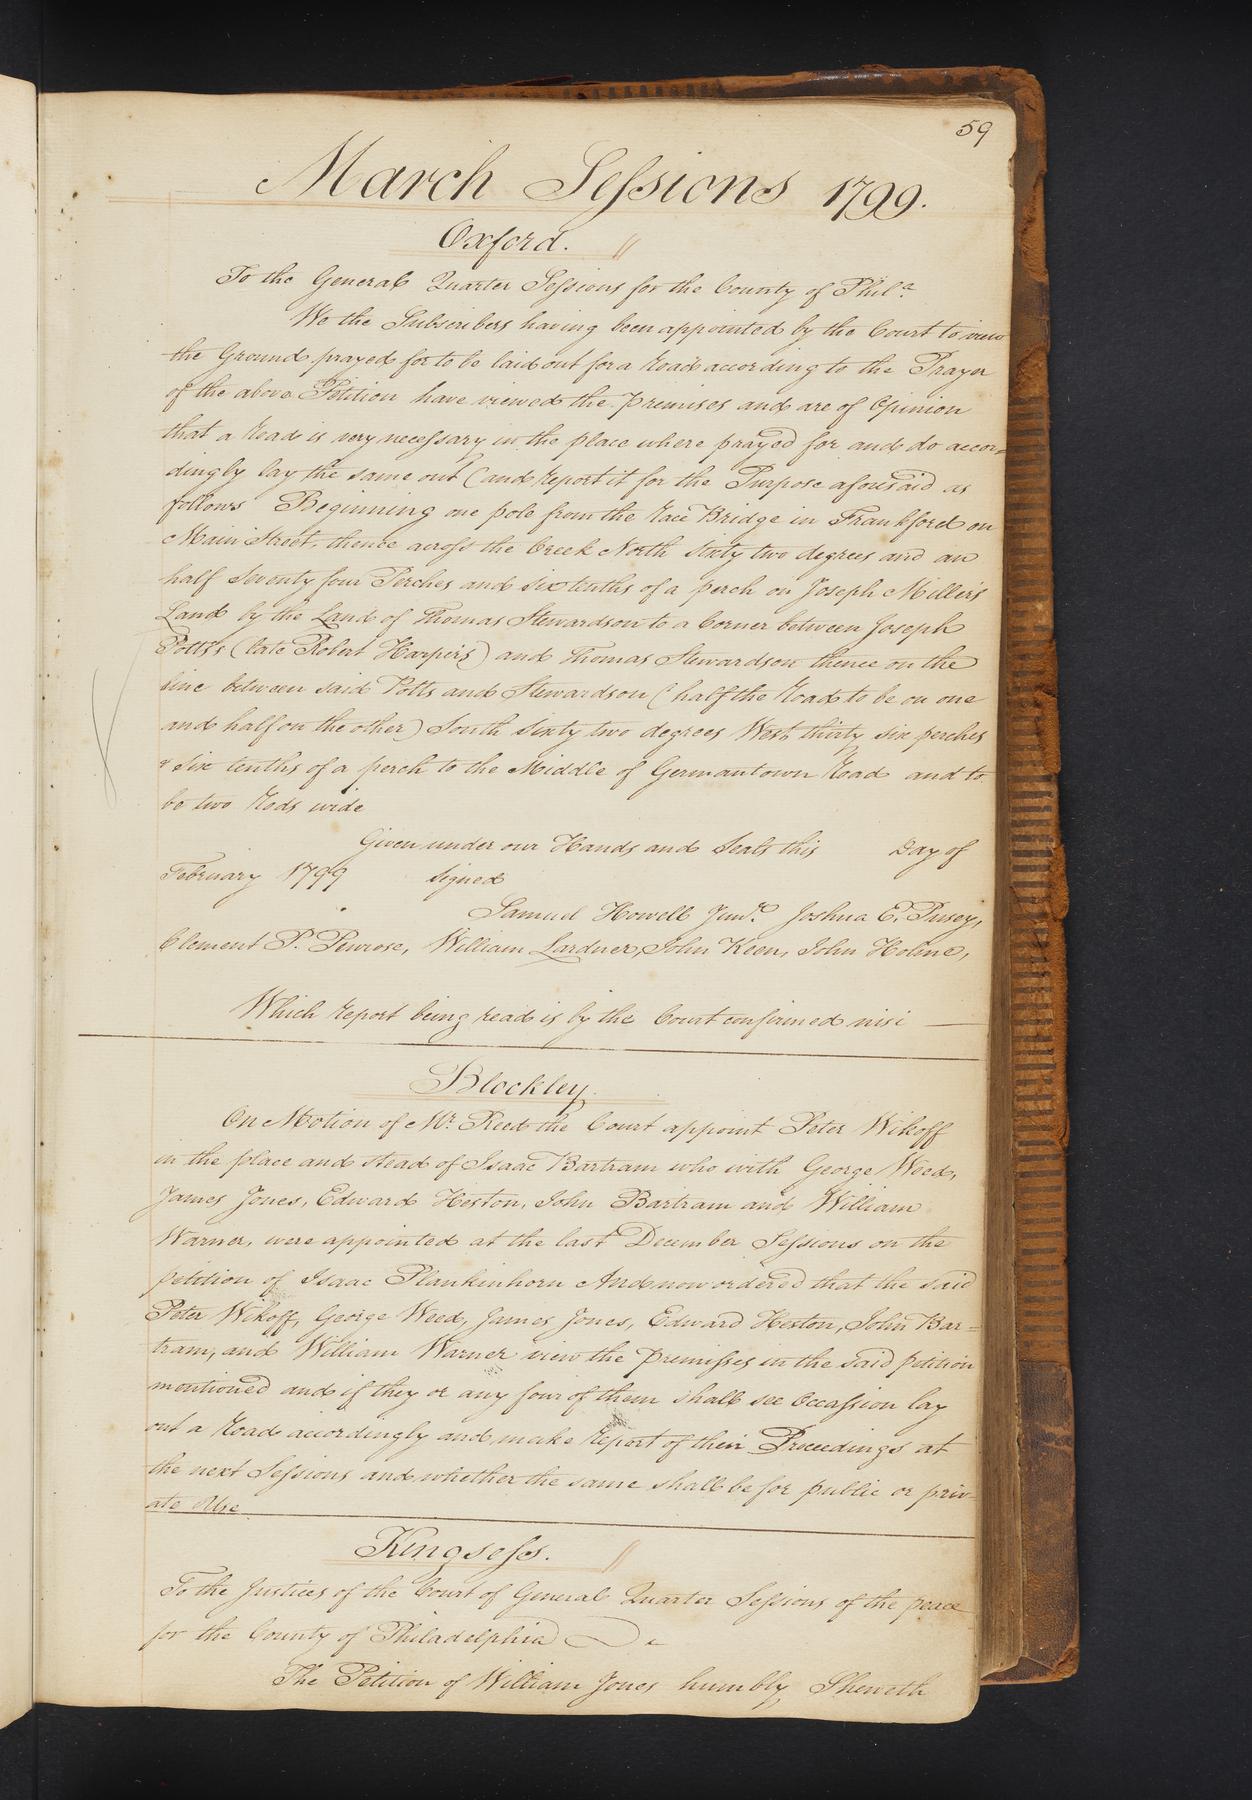 59
March Sessions 1799.
Oxford. //
To the General Quarter Sessions for the County of Phila.
We the Subscribers having been appointed by the Court to view
the Ground prayed for to be laid out for a Road according to the Prayer
of the above Petition have viewed the Premises and are of Opinion
that a Road is very necessary in the place where prayed for and do accor=
dingly lay the same out (and report it for the Purpose aforesaid as
follows Beginning one pole from the Race Bridge in Frankford on
Main Street, thence across the Creek North sixty two degrees and an
half Seventy four Perches and six tenths of a perch on Joseph Miller's
Land by the Land of Thomas Stewardson to a Corner between Joseph
Potts's (late Robert Harper's) and Thomas Stewardson thence on the
line between said Potts and Stewardson (half the Road to be on one
and half on the other) South sixty two degrees West thirty six perches
& six tenths of a perch to the Middle of Germantown Road and to
be two Rods wide
Given under our Hands and Seals this Day of
February 1799 signed
Samuel Howell Junr. Joshua E. Pusey,
Clement P. Penrose, William Lardner, John Keen, John Holme,
Which report being read is by the Court confirmed nisi —
Blockley.
On Motion of Mr. Reed the Court appoint Peter Wikoff
in the place and stead of Isaac Bartram who with George Weed,
James Jones, Edward Heston, John Bartram and William
Warner, were appointed at the last December Sessions on the
petition of Isaac Plankinhorn And now ordered that the said
Peter Wikoff, George Weed, James Jones, Edward Heston, John Bar=
tram, and William Warner view the premisses in the said petition
mentioned and if they or any four of them shall see Occassion lay
out a Road accordingly and make report of their Proceedings at
the next Sessions and whether the same shall be for public or priv-
ate Use
Kingsess. //
To the Justices of the Court of General Quarter Sessions of the peace
for the County of Philadelphia
The Petition of William Jones humbly Sheweth